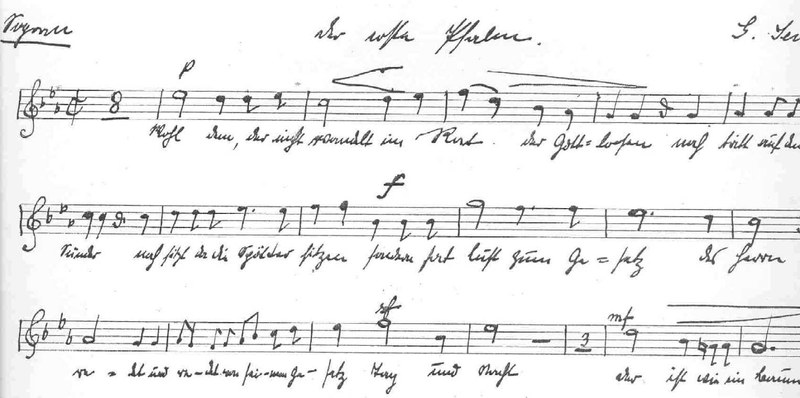 Sopran der erste Psalm. G.
8 p
Wohl dem, der nicht wandelt im Rat der Gott=losen noch tritt auf den
f
Sünder noch sitzt da die Spötter sitzen sondern hat Lust zum Ge=setz des Herrn
sf 3 mf
re=det und re=det von sei=nem Ge=setz Tag und Nacht der ist wie ein Baum